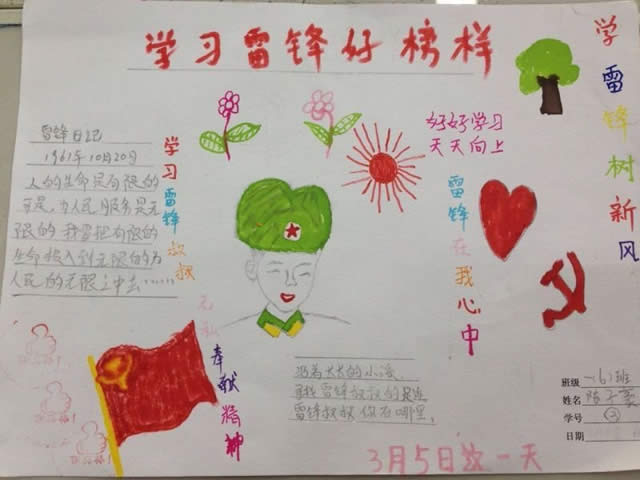 学习雷锋好榜样
学雷锋树新风
雷锋日记
1961年10月20日
人的生命是有限的
可是,为人民服务是无
限的我要把有限的
生命投入到无限的为
人民的无限之中去……
学习雷锋叔叔
无私
奉献精神
好好学习
天天向上
雷锋在我心中
沿着长长的小溪
寻找雷锋叔叔的足迹
雷锋叔叔你在哪里
班级 一(6)班
姓名 陈子
学号 ②
日期
3月5日这一天